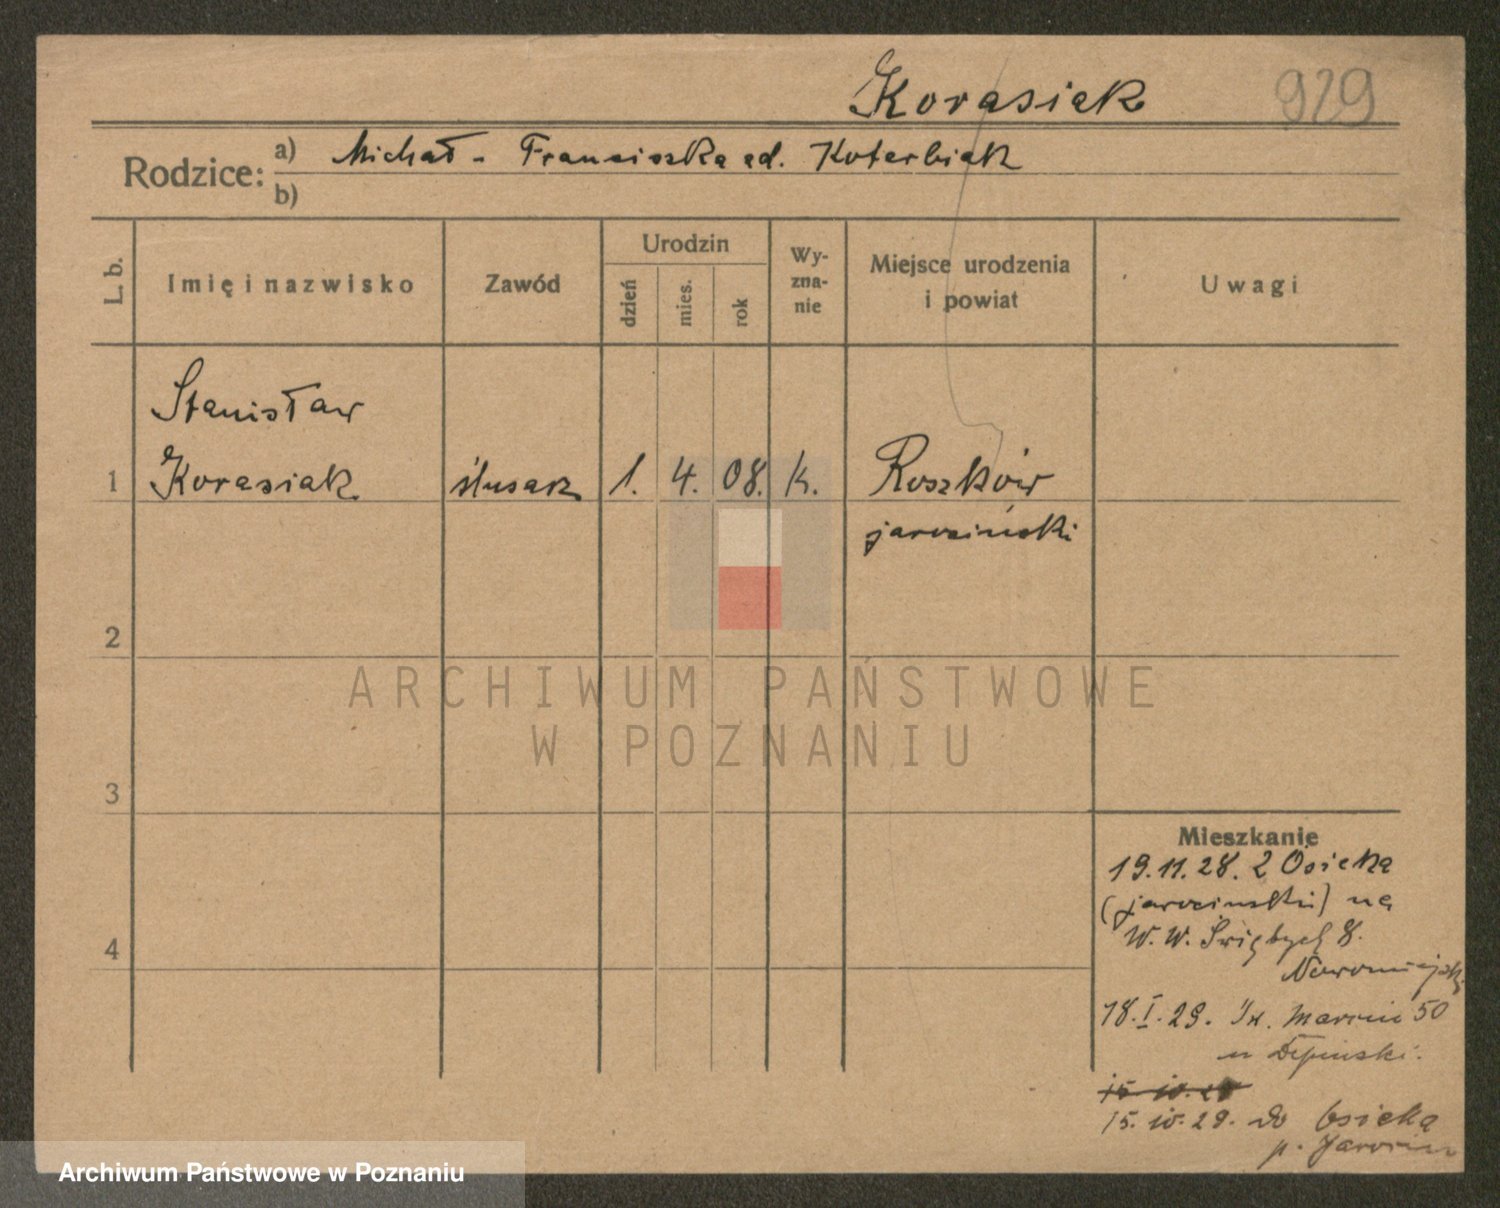 Korasiak 929
Rodzice: a) Michał - Franciszka ed. Koterbiak
b)
L. b.
Imię i nazwisko
Zawód
Urodzin
dzień
mies.
rok
Wy-
zna-
nie
Miejsce urodzenia
i powiat
Uwagi
Stanisław
1 Korasiak ślusarz 1. 4. 08. k. Roszków
jarociński
2
3
4
ARCHIWUM PAŃSTWOWE
W POZNANIU
Mieszkanie
19.11.28. z Osieka
(jarocinski) na
W. W. Świętych 8.
Nowomiejski
18.I.29. Św. Marcin 50
u Dępinski.
15. IV. 29
15. IV. 29. do Osieka
p. Jarocin
Archiwum Państwowe w Poznaniu